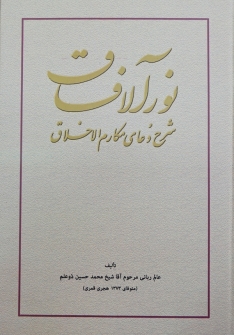 نورآلافاق
شرح دعای مکارم الاخلاق
تألیف
عالم ربانی مرحوم آقا شیخ محمد حسین ذوعلم
(متوفای ۱۳۷۳ هجری قمری)